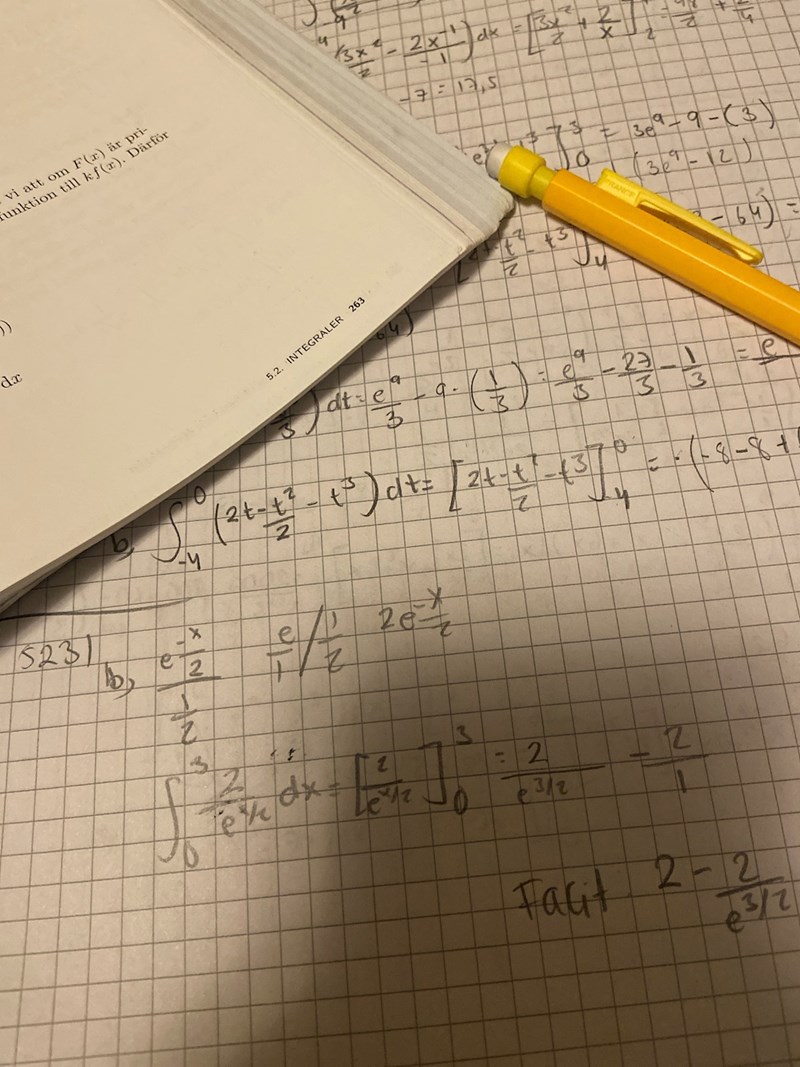 vi att om F(x) är pri-
funktion till kf(x). Därför
))
dx
5.2. INTEGRALER 263
(3x²/2 - 2x⁻¹/-1) dx = [3x²/2 + 2/x]
-7 = 17,5
]₀³ = 3e⁹ - 9 - (3)
(3e⁹ - 12)
- 64) =
) dt = e⁹/3 - 9 · (1/3) = e⁹/3 - 27/3 - 1/3 = e
b, ∫₋₄⁰ (2t - t²/2 - t³) dt = [2t - t²/2 - t³]₋₄⁰ = -(-8-8+
5231 b, e^(-x/2)/(1/2) e/1 / 1/2 2e^(-x/2)
∫₀³ 2/e^(x/2) dx = [2/e^(x/2)]₀³ = 2/e^(3/2) - 2/1
Facit 2 - 2/e^(3/2)